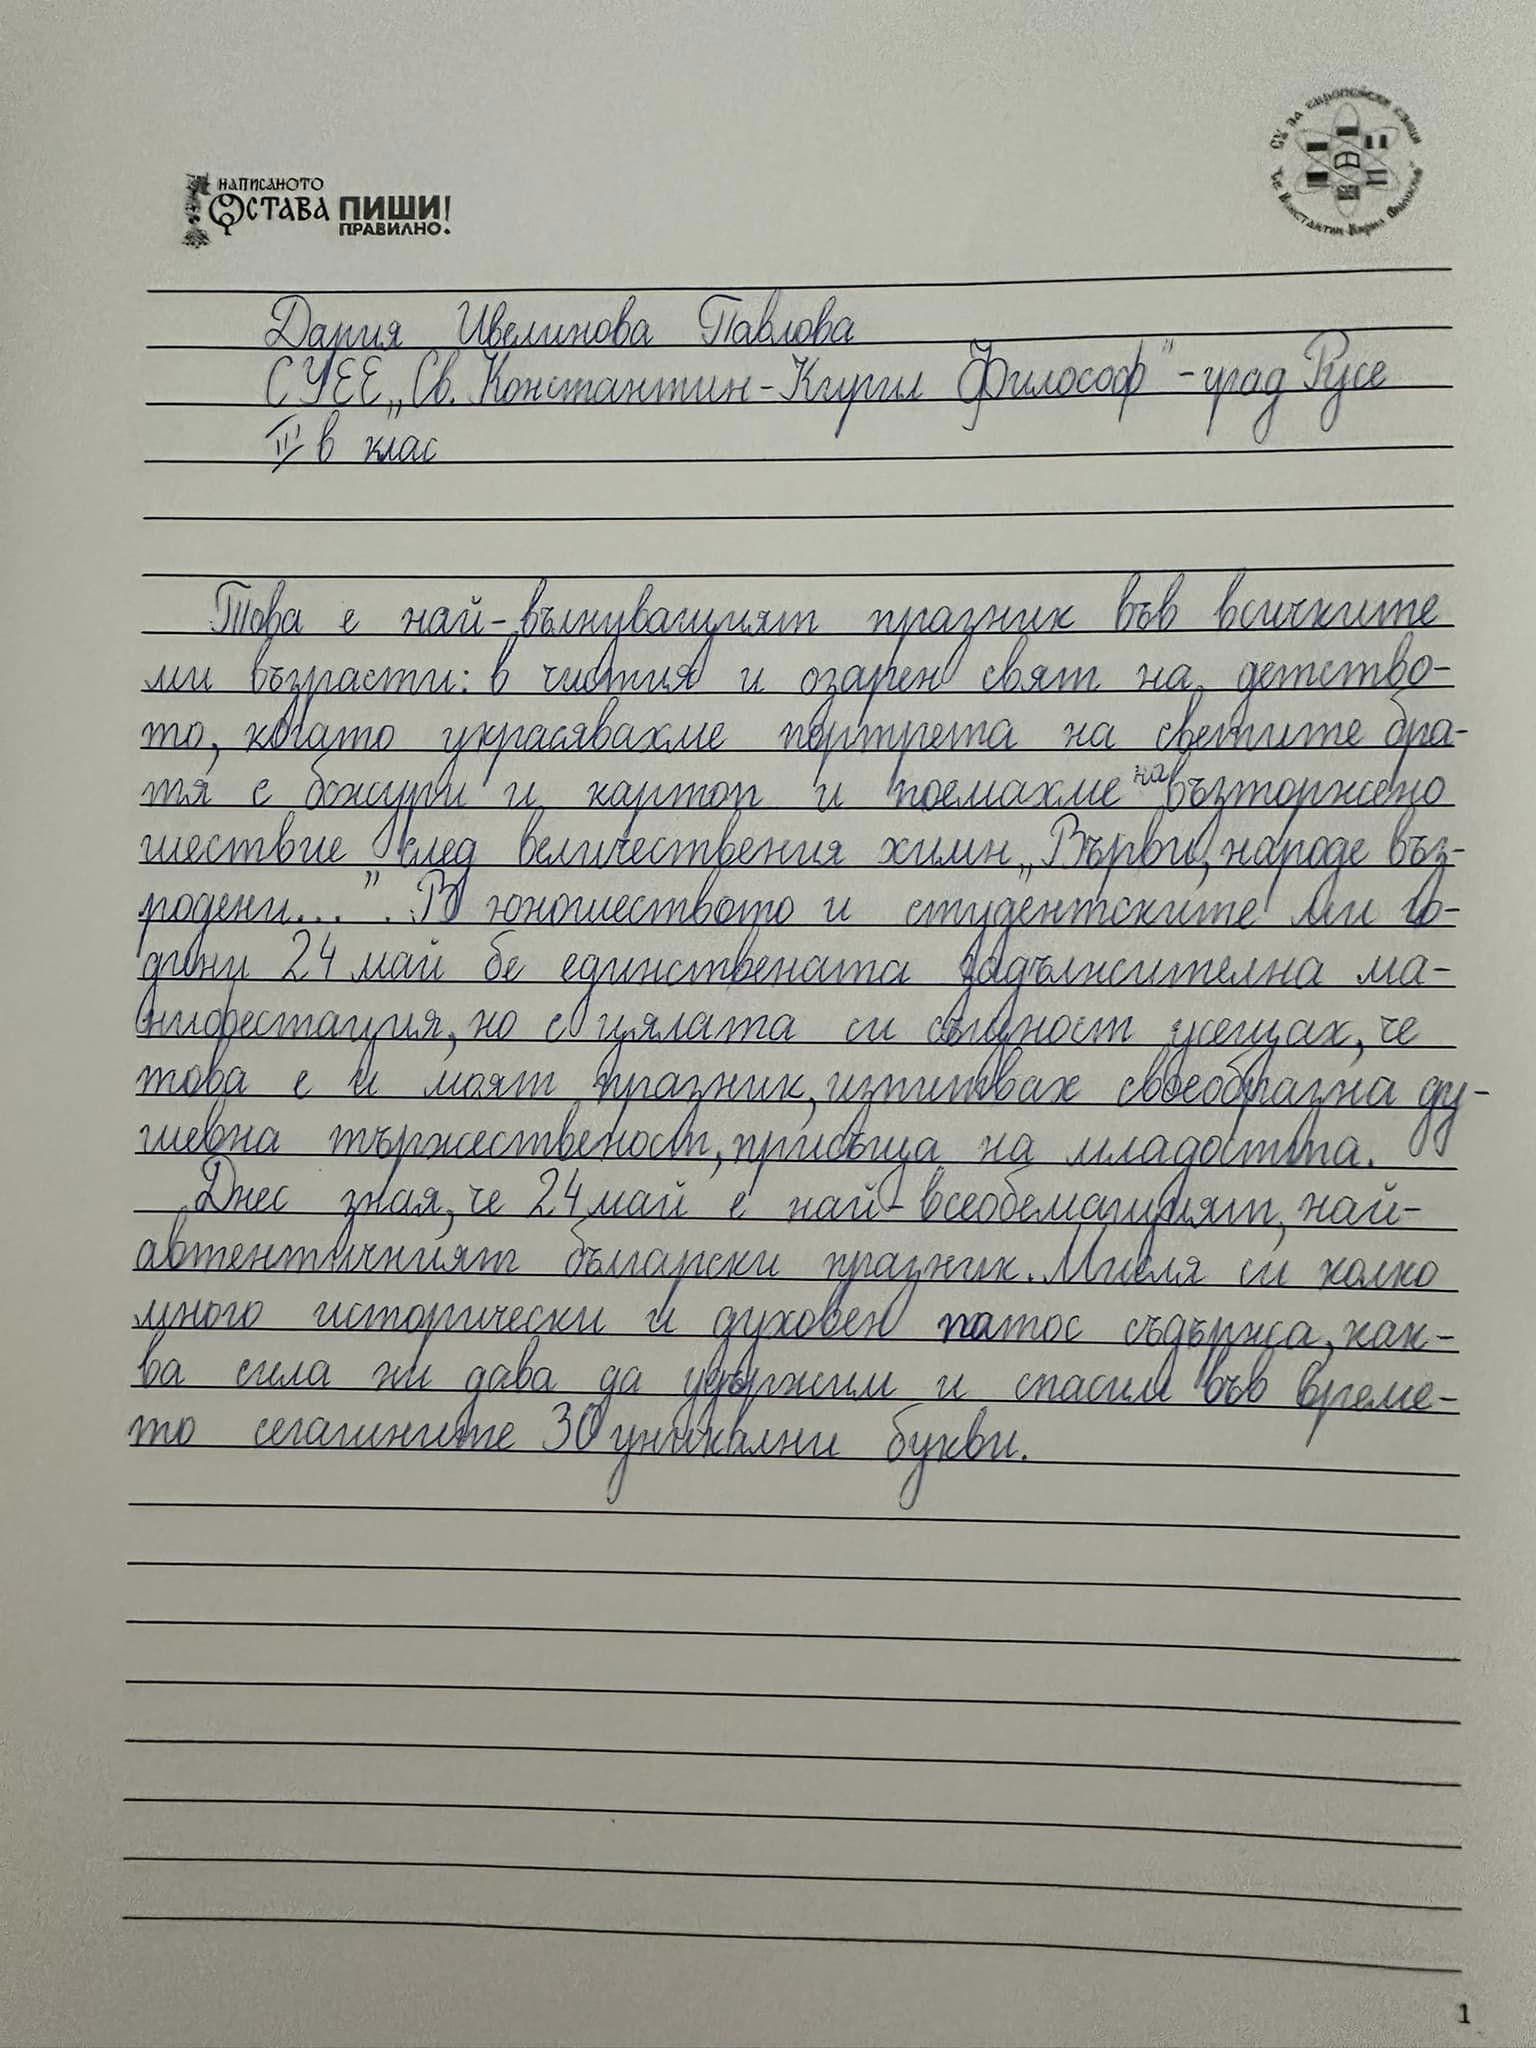 НАПИСАНОТО
ОСТАВА ПИШИ!
ПРАВИЛНО.
СУ за европейски езици
"Св. Константин-Кирил Философ"
Дария Ивелинова Павлова
СУЕЕ „Св. Константин-Кирил Философ" - град Русе
III в клас
Това е най-вълнуващият празник във всичките
ми възрасти: в чистия и озарен свят на детство-
то, когато украсявахме портрета на светите бра-
тя с божури и картоп и поемахме на възторжено
шествие след величествения химн „Върви, народе въз-
родени...". В юношеството и студентските ми го-
дини 24 май бе единствената задължителна ма-
нифестация, но с цялата си същност усещах, че
това е и моят празник, изпитвах своеобразна ду-
шевна тържественост, присъща на младостта.
Днес зная, че 24 май е най-всеобемащият, най-
автентичният български празник. Мисля си колко
много исторически и духовен патос съдържа, как-
ва сила ни дава да удържим и спасим във време-
то сегашните 30 уникални букви.
1